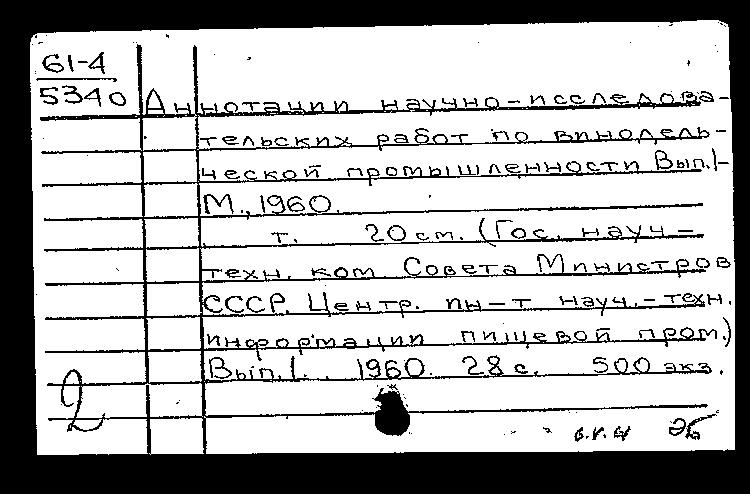 61-4
5340 Аннотации научно-исследова-
тельских работ по винодель-
ческой промышленности Вып. 1-
М., 1960.
т. 20 см. (Гос. науч-
техн. ком. Совета Министров
СССР. Центр. ин-т науч.-техн.
информации пищевой пром.)
Вып. 1. 1960. 28 с. 500 экз.
2